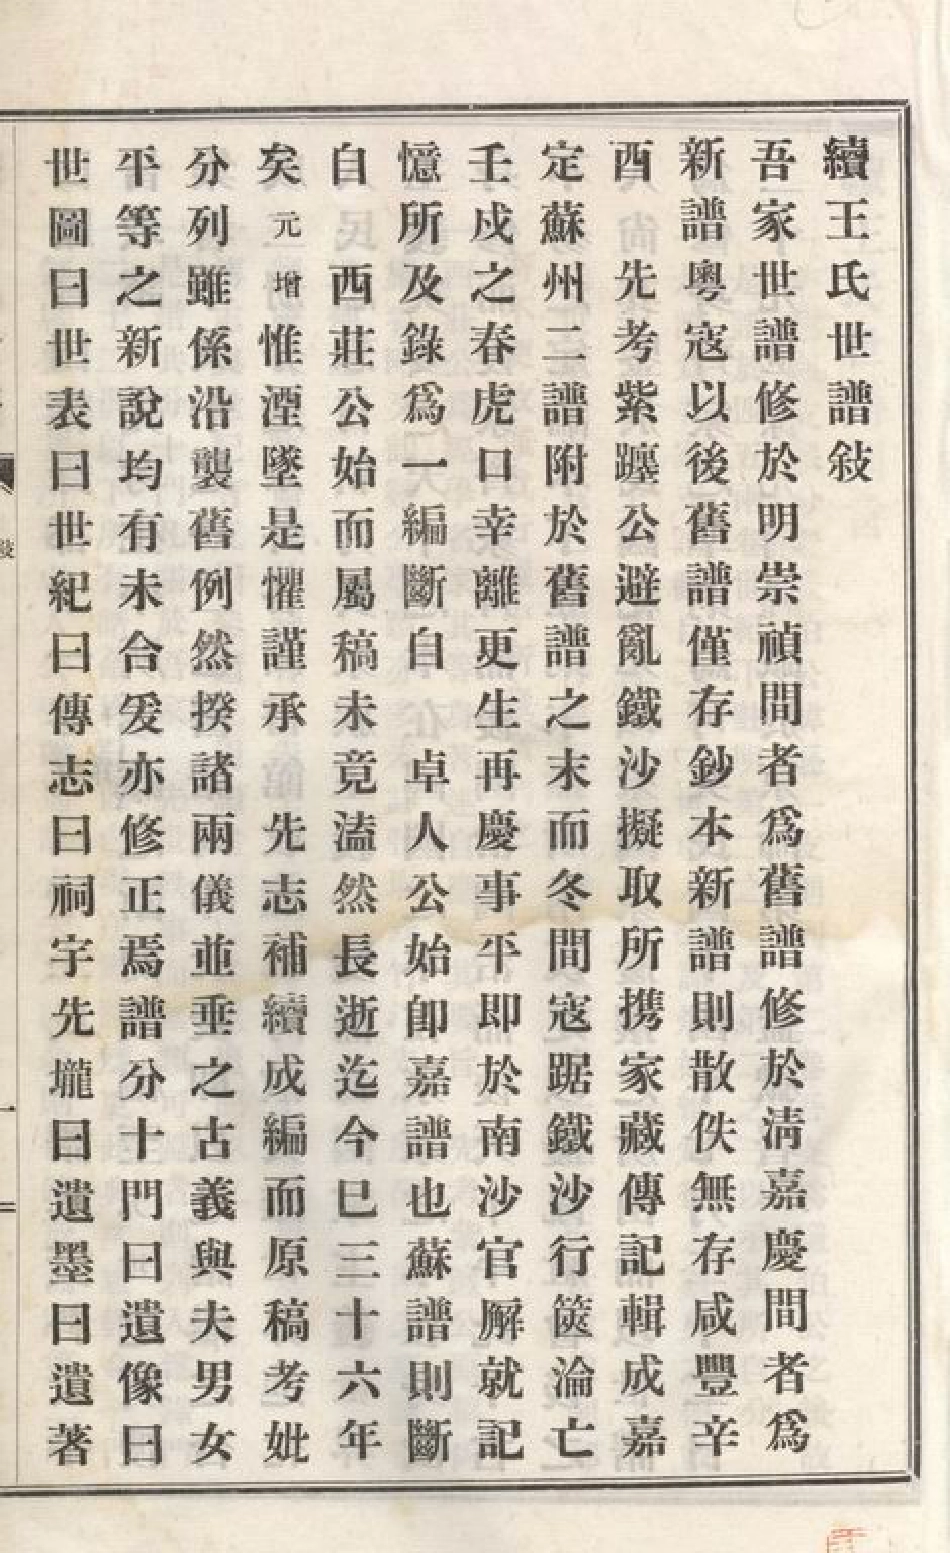 續王氏世譜敍
吾家世譜修於明崇禎間者爲舊譜修於淸嘉慶間者爲
新譜粵寇以後舊譜僅存鈔本新譜則散佚無存咸豐辛
酉先考紫躔公避亂鐵沙擬取所携家藏傳記輯成嘉
定蘇州二譜附於舊譜之末而冬間寇踞鐵沙行篋淪亡
壬戍之春虎口幸離更生再慶事平即於南沙官廨就記
憶所及錄爲一編斷自卓人公始卽嘉譜也蘇譜則斷
自西莊公始而屬稿未竟溘然長逝迄今巳三十六年
矣元增惟湮墜是懼謹承先志補續成編而原稿考妣
分列雖係沿襲舊例然揆諸兩儀並垂之古義與夫男女
平等之新說均有未合爰亦修正焉譜分十門曰遺像曰
世圖曰世表曰世紀曰傳志曰祠宇先壠曰遺墨曰遺著
敍
一